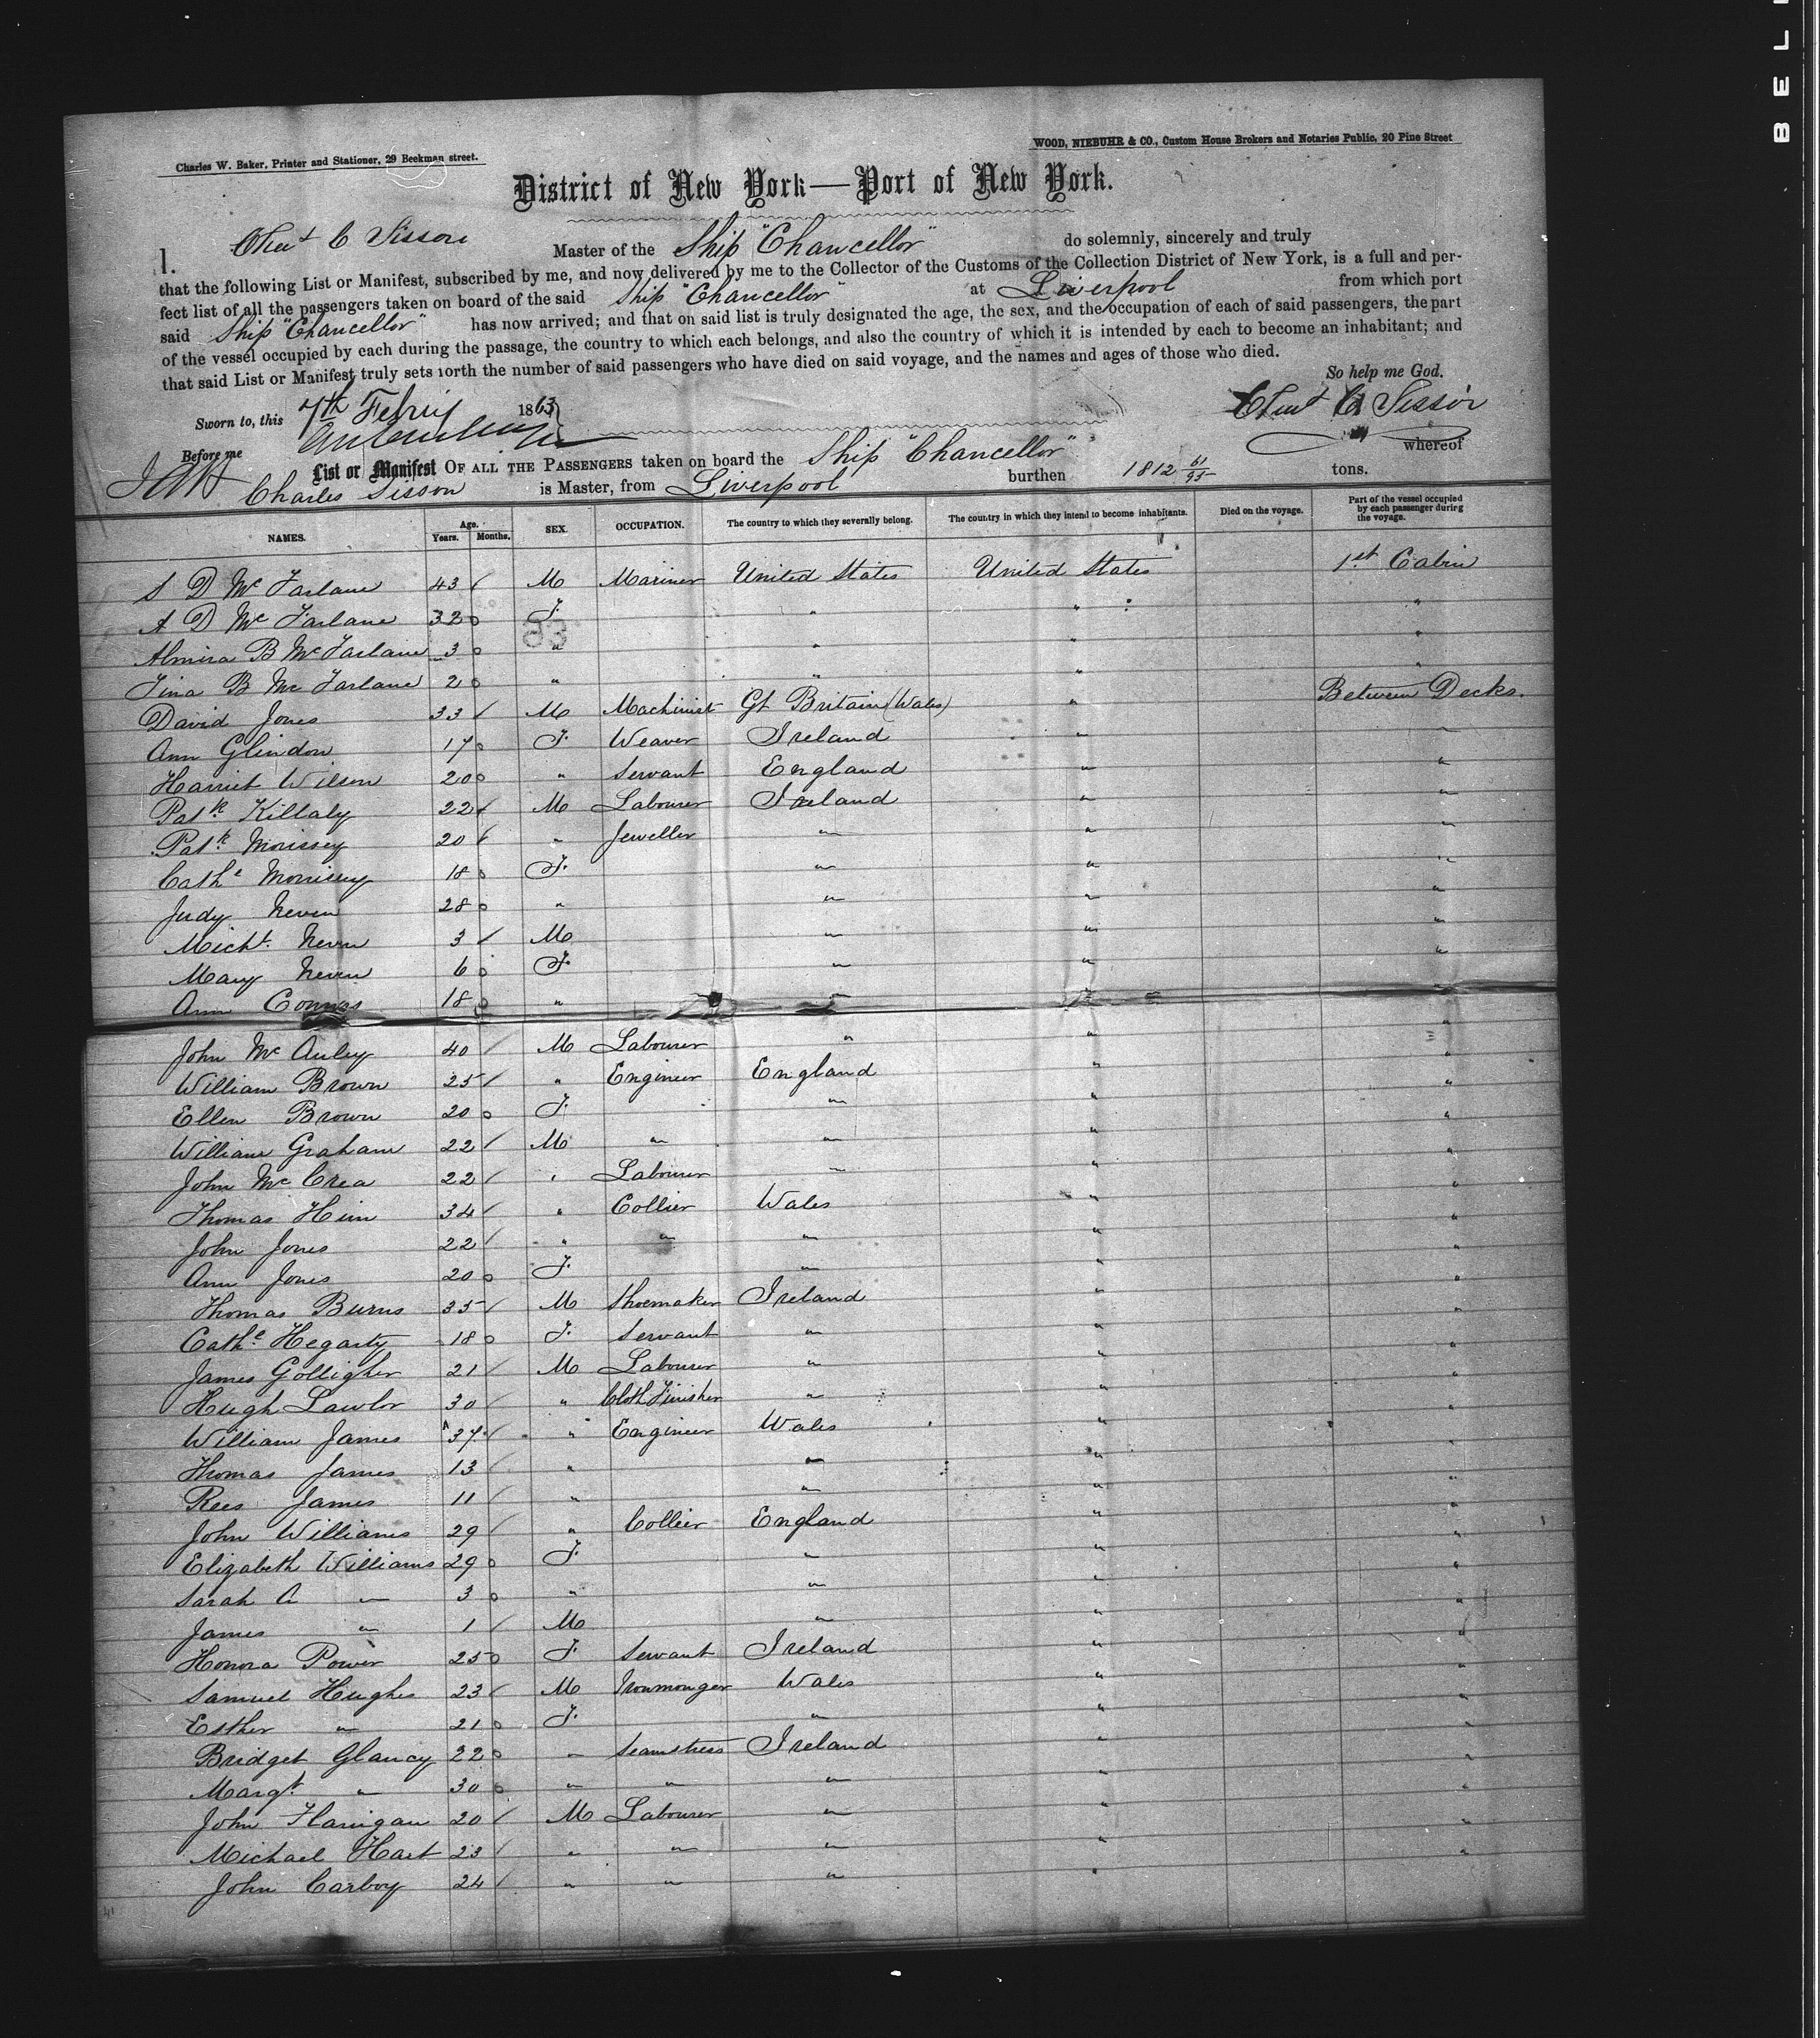 BEL
Charles W. Baker, Printer and Stationer, 29 Beekman street.
WOOD, NIEBUHR & CO., Custom House Brokers and Notaries Public, 20 Pine Street
District of New York—Port of New York.
I. Chas C Sisson Master of the Ship "Chancellor" do solemnly, sincerely and truly
that the following List or Manifest, subscribed by me, and now delivered by me to the Collector of the Customs of the Collection District of New York, is a full and per-
fect list of all the passengers taken on board of the said Ship "Chancellor" at Liverpool from which port
said Ship "Chancellor" has now arrived; and that on said list is truly designated the age, the sex, and the occupation of each of said passengers, the part
of the vessel occupied by each during the passage, the country to which each belongs, and also the country of which it is intended by each to become an inhabitant; and
that said List or Manifest truly sets forth the number of said passengers who have died on said voyage, and the names and ages of those who died.
So help me God.
Sworn to, this 7th Feby 1863
Chas C Sisson
Before me
List or Manifest OF ALL THE PASSENGERS taken on board the Ship "Chancellor" whereof
Charles Sisson is Master, from Liverpool burthen 1812 61/95 tons.
NAMES. Age. Years. Months. SEX. OCCUPATION. The country to which they severally belong. The country in which they intend to become inhabitants. Died on the voyage. Part of the vessel occupied by each passenger during the voyage.
S D Mc Farlane 43 / M Mariner United States United States 1st Cabin
A D Mc Farlane 32 0 F. " " "
Almira B McFarlane 3 0 " " " "
Tina B Mc Farlane 2 0 " " " "
David Jones 33 / M Machinist Gt Britain (Wales) " Between Decks.
Ann Glindon 17 0 F. Weaver Ireland " "
Harriet Wilson 20 0 " Servant England " "
Patk Killaly 22 / M Labourer Ireland " "
Patk Morissey 20 / " Jeweller " " "
Cathe Morrisey 18 0 F. " " "
Judy Neven 28 0 " " " "
Michl. Neven 3 / M " " "
Mary Neven 6 0 F. " " "
Ann Connos 18 0 " " " "
John Mc Auley 40 / M Labourer " " "
William Brown 25 / " Engineer England " "
Ellen Brown 20 0 F. " " "
William Graham 22 / M " " " "
John Mc Crea 22 / " Labourer " " "
Thomas Hinn 34 / " Collier Wales " "
John Jones 22 / " " " " "
Ann Jones 20 0 F. " " "
Thomas Burns 35 / M Shoemaker Ireland " "
Cathe Hegarty 18 0 F. Servant " " "
James Golligher 21 / M Labourer " " "
Hugh Lawlor 30 / " Cloth Finisher " " "
William James 37 / " Engineer Wales " "
Thomas James 13 / " " " "
Rees James 11 / " " " "
John Williams 29 / " Collier England " "
Elizabeth Williams 29 0 F. " " "
Sarah A " 3 0 " " " "
James " 1 / M " " "
Honora Power 25 0 F. Servant Ireland " "
Samuel Hughes 23 / M Ironmonger Wales " "
Esther " 21 0 F. " " "
Bridget Glancy 22 0 " Seamstress Ireland " "
Margt " 30 0 " " " " "
John Flanigan 20 / M Labourer " " "
Michael Hart 23 / " " " " "
John Carboy 24 / " " " " "